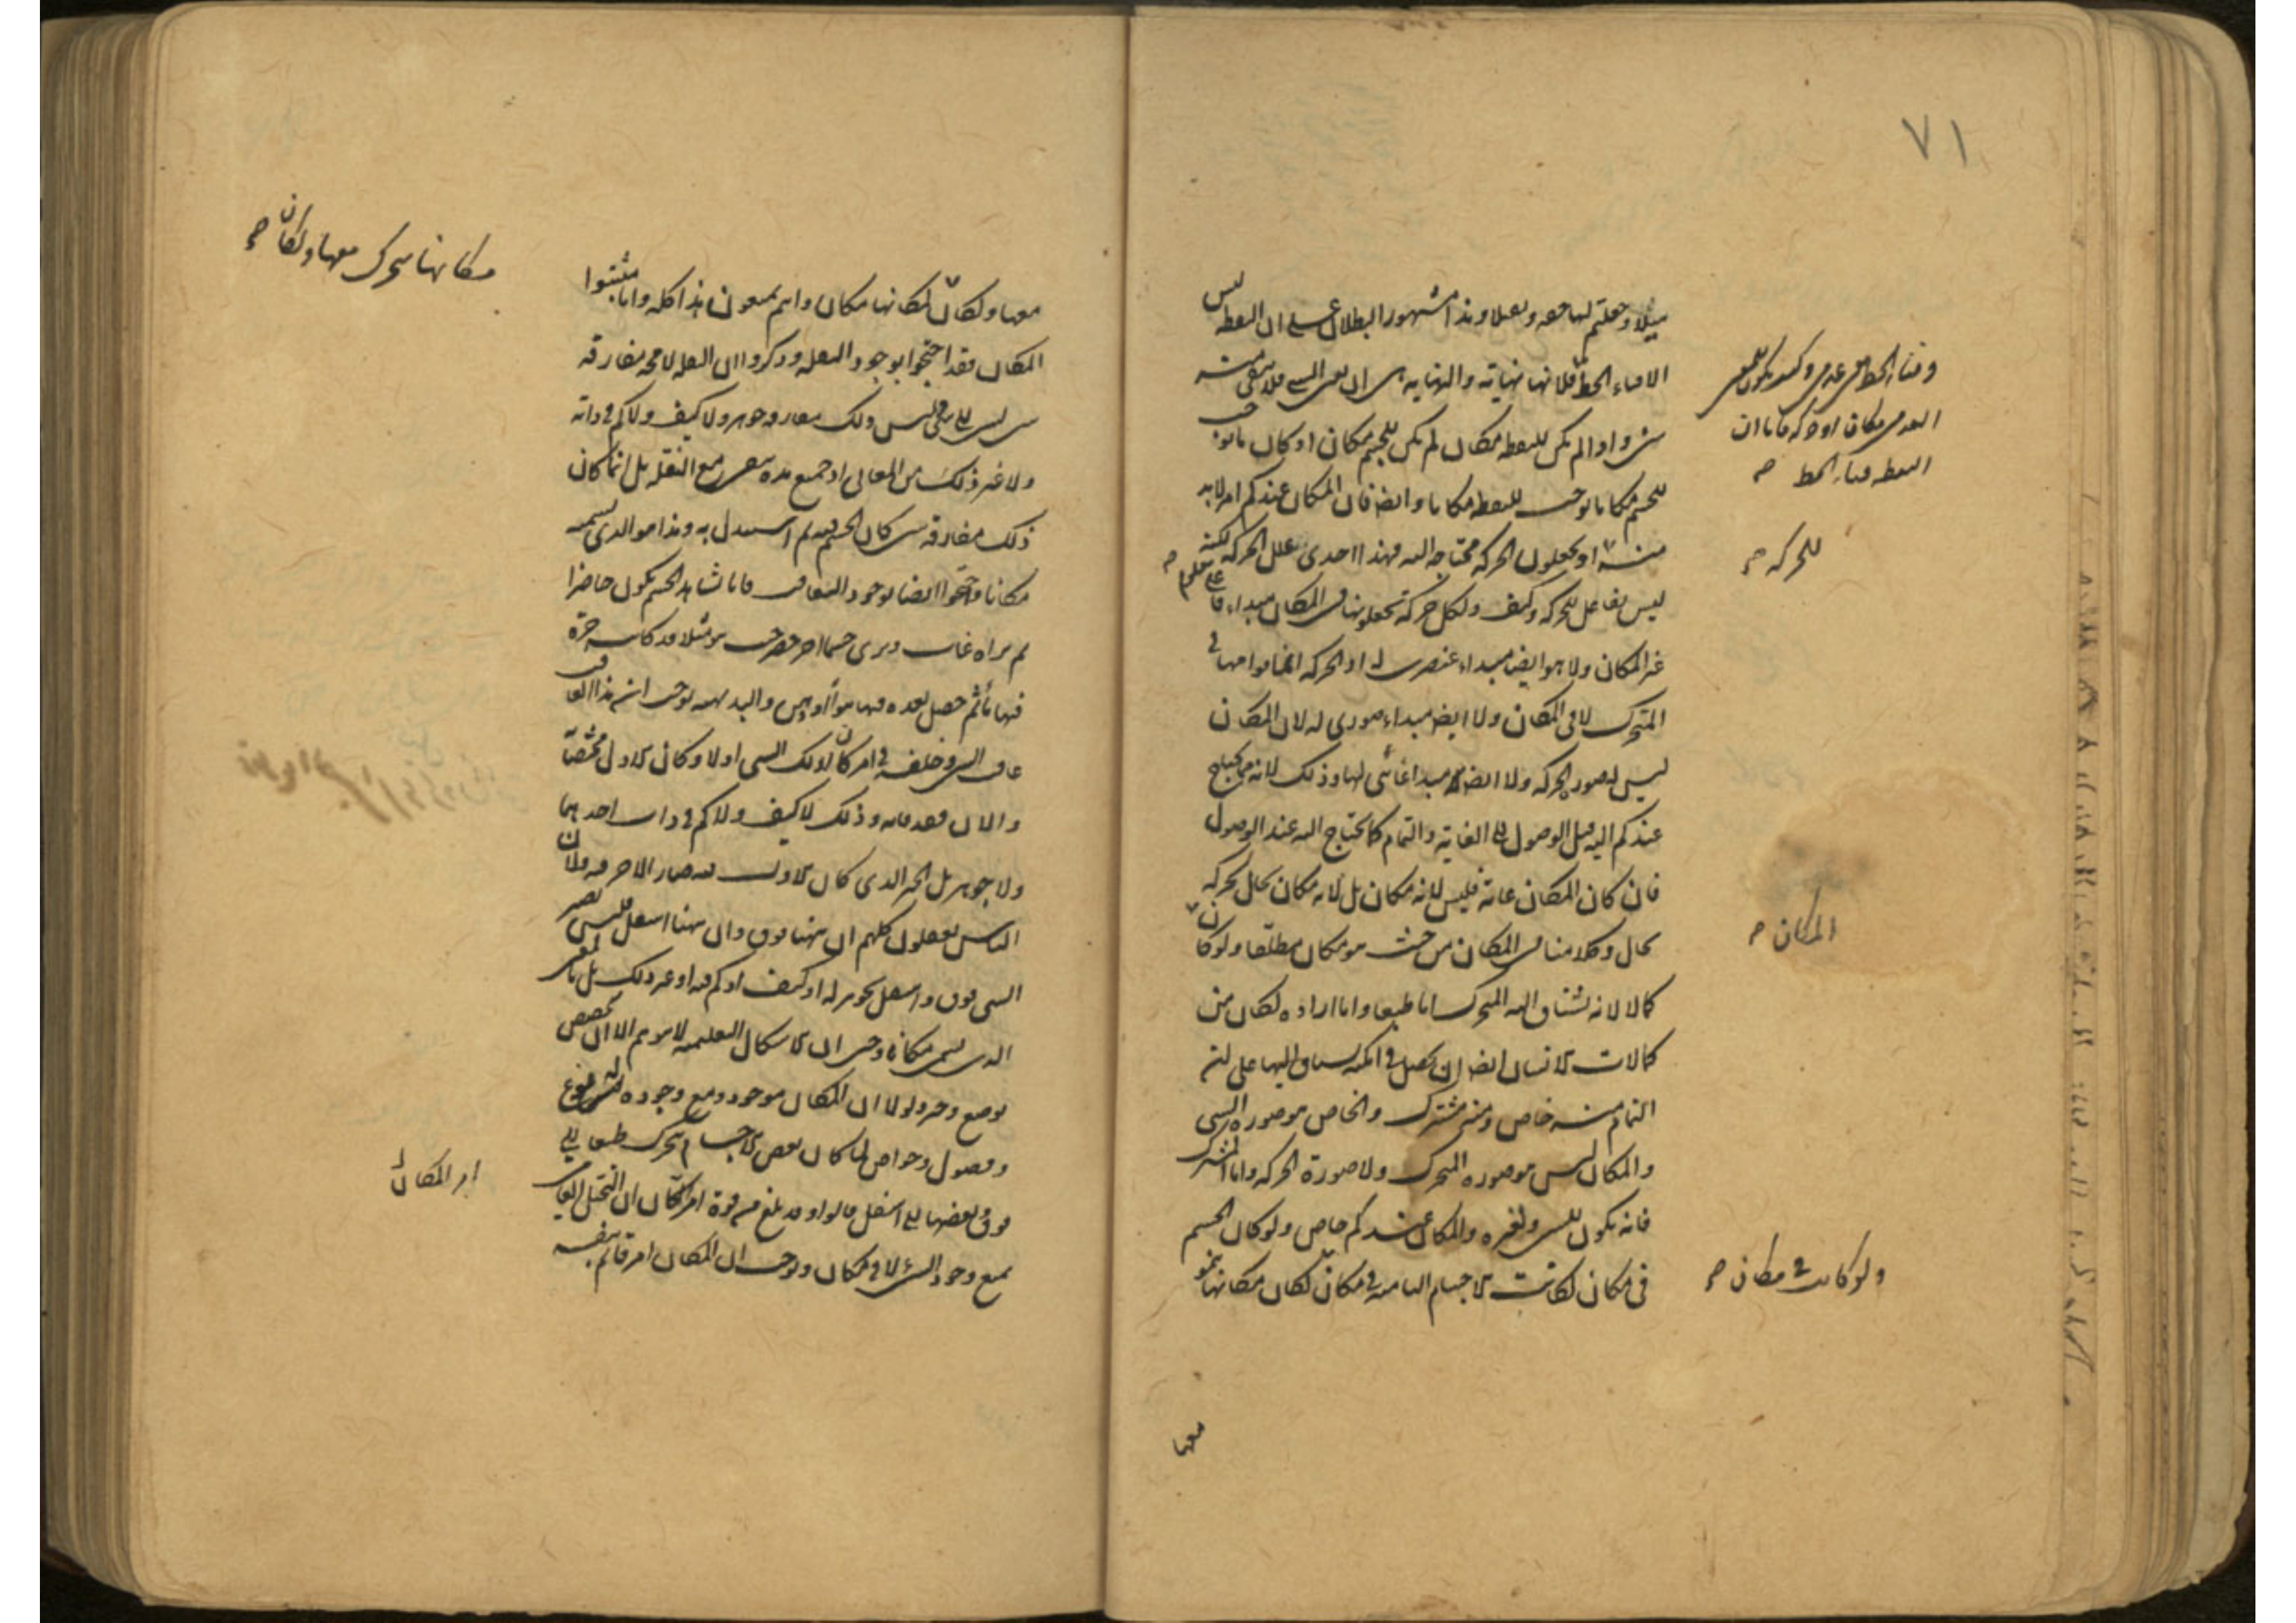 ٧١
ميلا وجعلتم لها خفة وثقلا وهذا مشهور البطلان على ان النقطة ليس
الا فناء الخط
شيء واذا لم يكن للنقطة مكان لم يكن للجسم مكان اذ كان ما يوجب
للجسم مكانا يوجب للنقطة مكانا وايضا فان المكان عندكم امر لا بد
منه اذ تجعلون الحركة محتاجة اليه فهذا احدى علل الحركة لكنه
ليس بفاعل للحركة وكيف ولكل حركة تجعلونها في المكان مبداء فاعلي
غير المكان ولا هو ايضا مبداء عنصري له اذ الحركة انما قوامها في
المتحرك لا في المكان ولا ايضا مبداء صوري له لان المكان
ليس بصورة الحركة ولا ايضا مبدا غائي لها وذلك لانه يحتاج
عندكم اليه قبل الوصول الى الغاية والتمام كما يحتاج اليه عند الوصول
فان كان المكان غاية فليس لانه مكان بل لانه مكان بحال لمحركه
بحال وكلامنا في المكان من حيث هو مكان مطلقا ولو كان
كمالا لانه يشتاق اليه المتحرك اما طبعا واما ارادة لكان من
كمالات الانسان ايضا ان يحصل في امكنة يشتاق اليها على ان
التمام منه خاص ومنه مشترك والخاص هو صورة الشيء
والمكان ليس هو صورة المتحرك ولا صورة الحركة واما المشترك
فانه يكون للشيء ولغيره والمكان عندكم خاص ولو كان الجسم
في مكان لكانت الاجسام النامية في مكان لكان مكانها ينمو
وفناء الخط معنى عدمي وكيف يكون للمعنى
العدمي مكان او حركة فاما ان
النقطة فناء الخط صح
للحركة صح
المكان صح
ولو كانت في مكان صح
معها
مكانها يتحرك معها ولكان صح
معها ولكان لمكانها مكان وانتم تمنعون هذا كله واما مثبتوا
المكان فقد احتجوا بوجود النقلة وذكروا ان النقلة لا محة مفارقة
شيء لشيء الى شيء وليس ذلك مفارقة جوهر ولا كيف ولا كم في ذاته
ولا غير ذلك من المعاني اذ جميع هذه تبقى مع النقلة بل انما كان
ذلك مفارقة شيء كان الجسم فيه ثم استبدل به وهذا هو الذي نسميه
مكانا واحتجوا ايضا بوجود التعاقب فانا نشاهد الجسم يكون حاضرا
ثم نراه غاب ونرى جسما اخر حضر حيث هو مثلا قد كانت جرة
فيها ماء ثم حصل بعده فيها هواء او دهن والبديهة توجب ان هذا المعاقب
عاقب الشيء وخلفه في امر كان لذلك الشيء اولا وكان الاول مختصا
والان فقد فاته وذلك لا كيف ولا كم في ذات احدهما
ولا جوهر بل الحيز الذي كان الاول فيه صار الاخر فيه ولان
الناس يعقلون كلهم ان ههنا فوق وان ههنا اسفل فليس يصير
الشيء فوق واسفل بجوهر له او كيف او كم فيه او غير ذلك بل بالمعنى
الذي يسمى مكانا وحتى ان الاشكال التعليمية لا توهم الا ان تخصص
بوضع وحيز ولولا ان المكان موجود ومع وجوده له تنوع
وفصول وخواص لما كان بعض الاجسام يتحرك طبعا الى
فوق وبعضها الى اسفل قالوا وقد بلغ من قوة امر المكان ان التخيل العامي
يمنع وجود الشيء لا في مكان ويوجب ان المكان امر قائم بنفسه
امر المكان